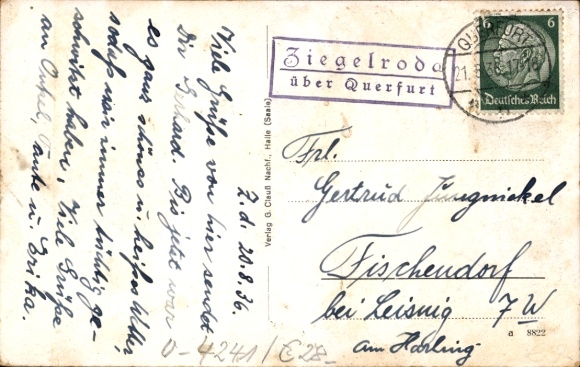 Z. d. 20.8.36.
Viele Grüße von hier sendet
Dir Gerhard. Bis jetzt war
es ganz schönes u. heißes Wetter,
sodaß wir immer tüchtig ge-
schwitzt haben. Viele Grüße
an Onkel, Tante u. Erika.
Verlag G. Clauß Nachf., Halle (Saale)
Ziegelroda
über Querfurt
QUERFURT
21.8.36
6 6
Deutsches Reich
Frl.
Gertrud Jungnickel
Fischendorf
bei Leisnig 7W
am Harling
a 8822
0-4241/€28-